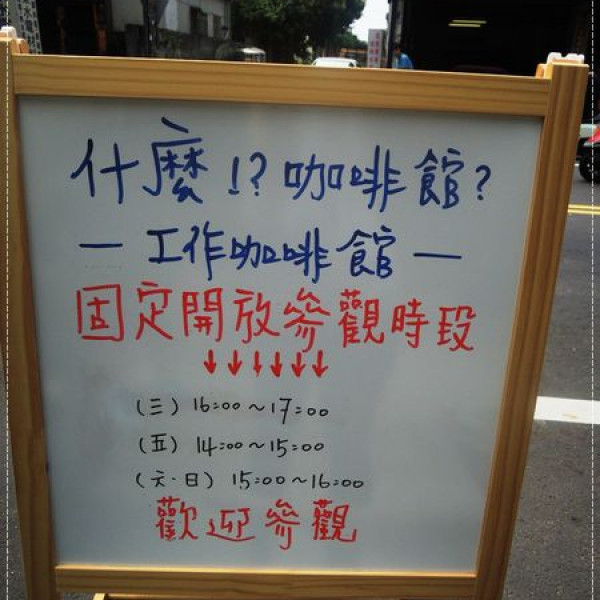 什麼!?咖啡館?
—工作咖啡館—
固定開放參觀時段
↓↓↓↓↓↓
(三) 16:00~17:00
(五) 14:00~15:00
(六·日) 15:00~16:00
歡迎參觀